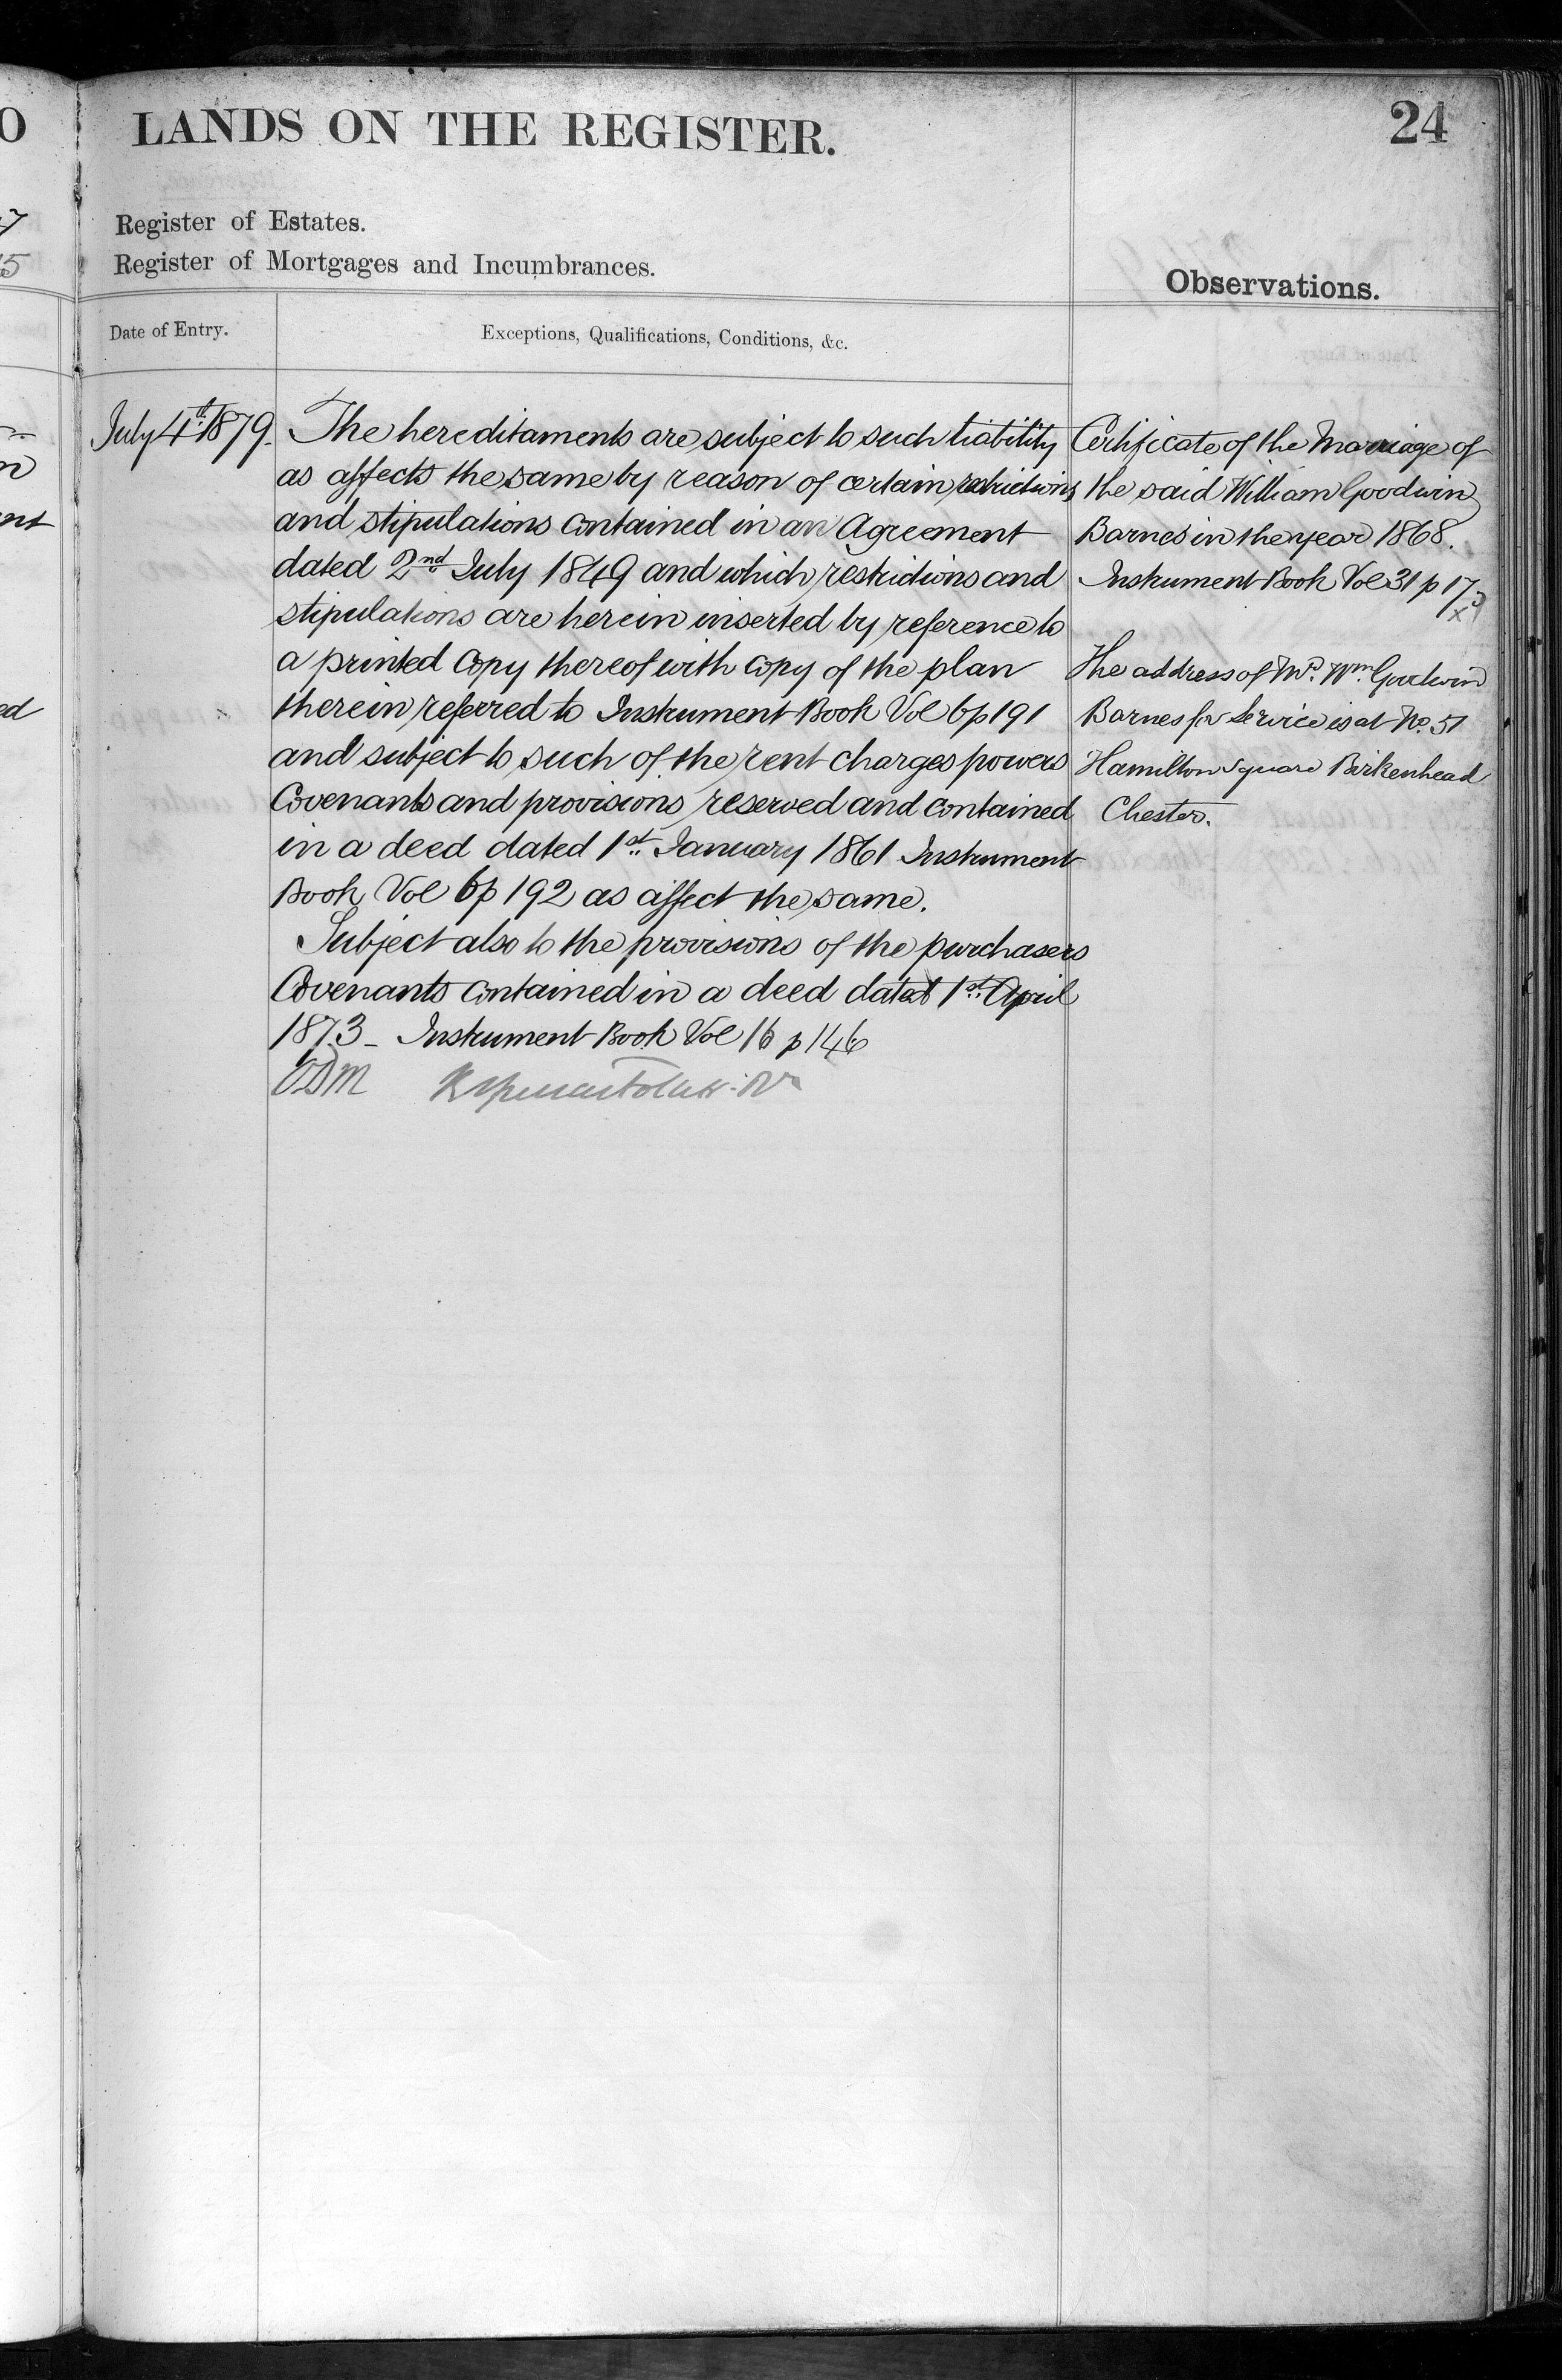 LANDS ON THE REGISTER.
24
Register of Estates.
Register of Mortgages and Incumbrances.
Observations.
Date of Entry.
Exceptions, Qualifications, Conditions, &c.
July 4th 1879.
The hereditaments are subject to such liability
as affects the same by reason of certain restrictions
and stipulations contained in an Agreement
dated 2nd July 1849 and which restrictions and
stipulations are herein inserted by reference to
a printed Copy thereof with copy of the plan
therein referred to Instrument Book Vol 6 p 191
and subject to such of the rent charges powers
Covenants and provisions reserved and contained
in a deed dated 1st January 1861 Instrument
Book Vol 6 p 192 as affect the same.
Subject also to the provisions of the purchasers
Covenants contained in a deed dated 1st April
1873 - Instrument Book Vol 16 p 146
Certificate of the Marriage of
the said William Goodwin
Barnes in the year 1868.
Instrument Book Vol 31 p
The address of Mr. Wm. Goodwin
Barnes for Service is at No. 51
Hamilton Square Birkenhead
Chester.